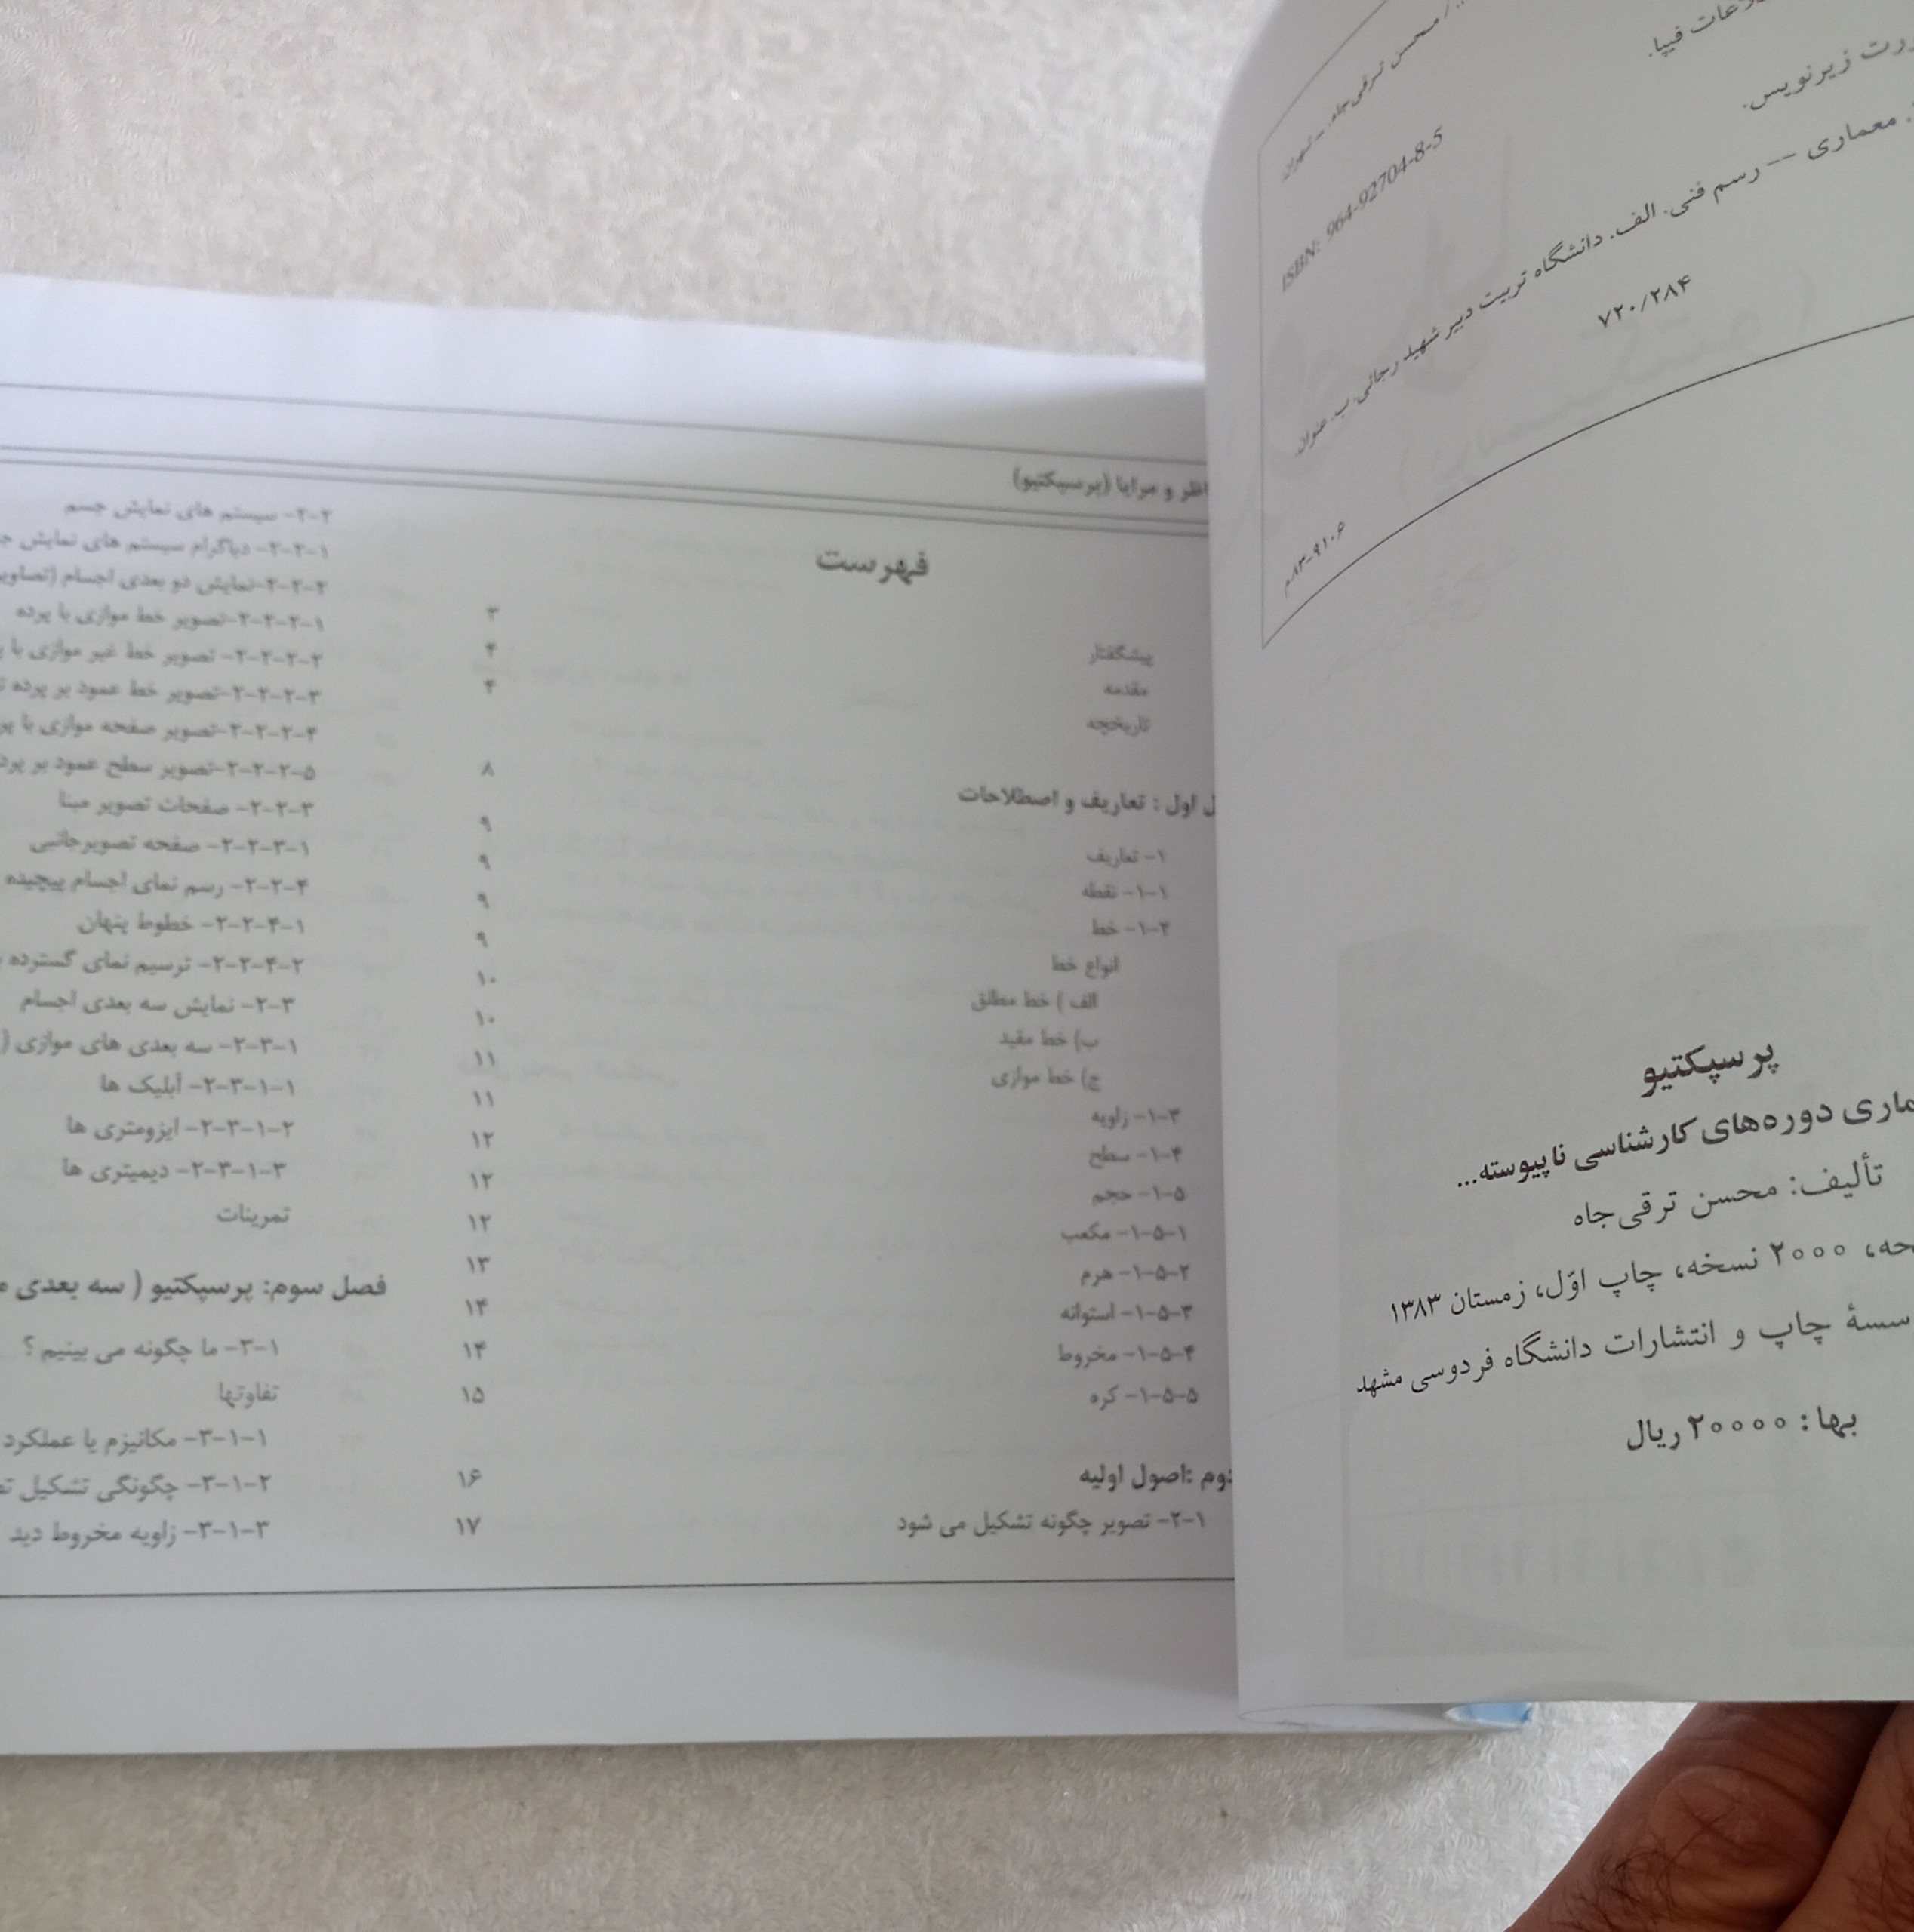 محسن ترقی‌جاه. – تهران:
فیپا.
زیرنویس.
ISBN: 964-92704-8-5
معماری -- رسم فنی. الف. دانشگاه تربیت دبیر شهید رجائی. ب. عنوان.
۷۲۰/۲۸۴
۸۳-۹۱۰۶م
پرسپکتیو
دوره‌های کارشناسی ناپیوسته...
تألیف: محسن ترقی‌جاه
۲۰۰۰ نسخه، چاپ اوّل، زمستان ۱۳۸۳
چاپ و انتشارات دانشگاه فردوسی مشهد
بها: ۲۰۰۰۰ ریال
و مرایا (پرسپکتیو)
فهرست
پیشگفتار ۳
مقدمه ۴
تاریخچه ۴
اول : تعاریف و اصطلاحات ۸
۱- تعاریف ۹
۱-۱- نقطه ۹
۱-۲- خط ۹
انواع خط ۹
الف ) خط مطلق ۱۰
ب) خط مقید ۱۰
ج) خط موازی ۱۱
۱-۳- زاویه ۱۱
۱-۴- سطح ۱۲
۱-۵- حجم ۱۲
۱-۵-۱- مکعب ۱۲
۱-۵-۲- هرم ۱۳
۱-۵-۳- استوانه ۱۴
۱-۵-۴- مخروط ۱۴
۱-۵-۵- کره ۱۵
دوم :اصول اولیه ۱۶
۲-۱- تصویر چگونه تشکیل می شود ۱۷
۲-۲- سیستم های نمایش جسم
۲-۲-۱- دیاگرام سیستم های نمایش
۲-۲-۲-نمایش دو بعدی اجسام (تصاویر
۲-۲-۲-۱-تصویر خط موازی با پرده
۲-۲-۲-۲- تصویر خط غیر موازی با
۲-۲-۲-۳-تصویر خط عمود بر پرده
۲-۲-۲-۴-تصویر صفحه موازی با
۲-۲-۲-۵-تصویر سطح عمود بر
۲-۲-۳- صفحات تصویر مبنا
۲-۲-۳-۱- صفحه تصویرجانبی
۲-۲-۴- رسم نمای اجسام پیچیده
۲-۲-۴-۱- خطوط پنهان
۲-۲-۴-۲- ترسیم نمای گسترده
۲-۳- نمایش سه بعدی اجسام
۲-۳-۱- سه بعدی های موازی (
۲-۳-۱-۱- آبلیک ها
۲-۳-۱-۲- ایزومتری ها
۲-۳-۱-۳- دیمتری ها
تمرینات
فصل سوم: پرسپکتیو ( سه بعدی
۳-۱- ما چگونه می بینیم ؟
تفاوتها
۳-۱-۱- مکانیزم یا عملکرد
۳-۱-۲- چگونگی تشکیل
۳-۱-۳- زاویه مخروط دید